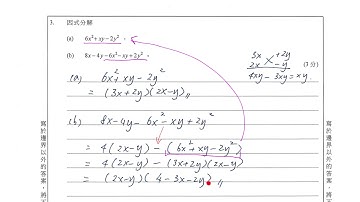 3. 因式分解
(a) 6x²+xy−2y²。
(b) 8x−4y−6x²−xy+2y²。
(3分)
3x +2y
2x −y
4xy −3xy = xy
(a) 6x²+xy−2y²
= (3x+2y)(2x−y)
(b) 8x−4y−6x²−xy+2y²
= 4(2x−y) − (6x²+xy−2y²)
= 4(2x−y) − (3x+2y)(2x−y)
= (2x−y)(4−3x−2y)
寫於邊界以外的答案，將不
寫於邊界以外的答案，將不